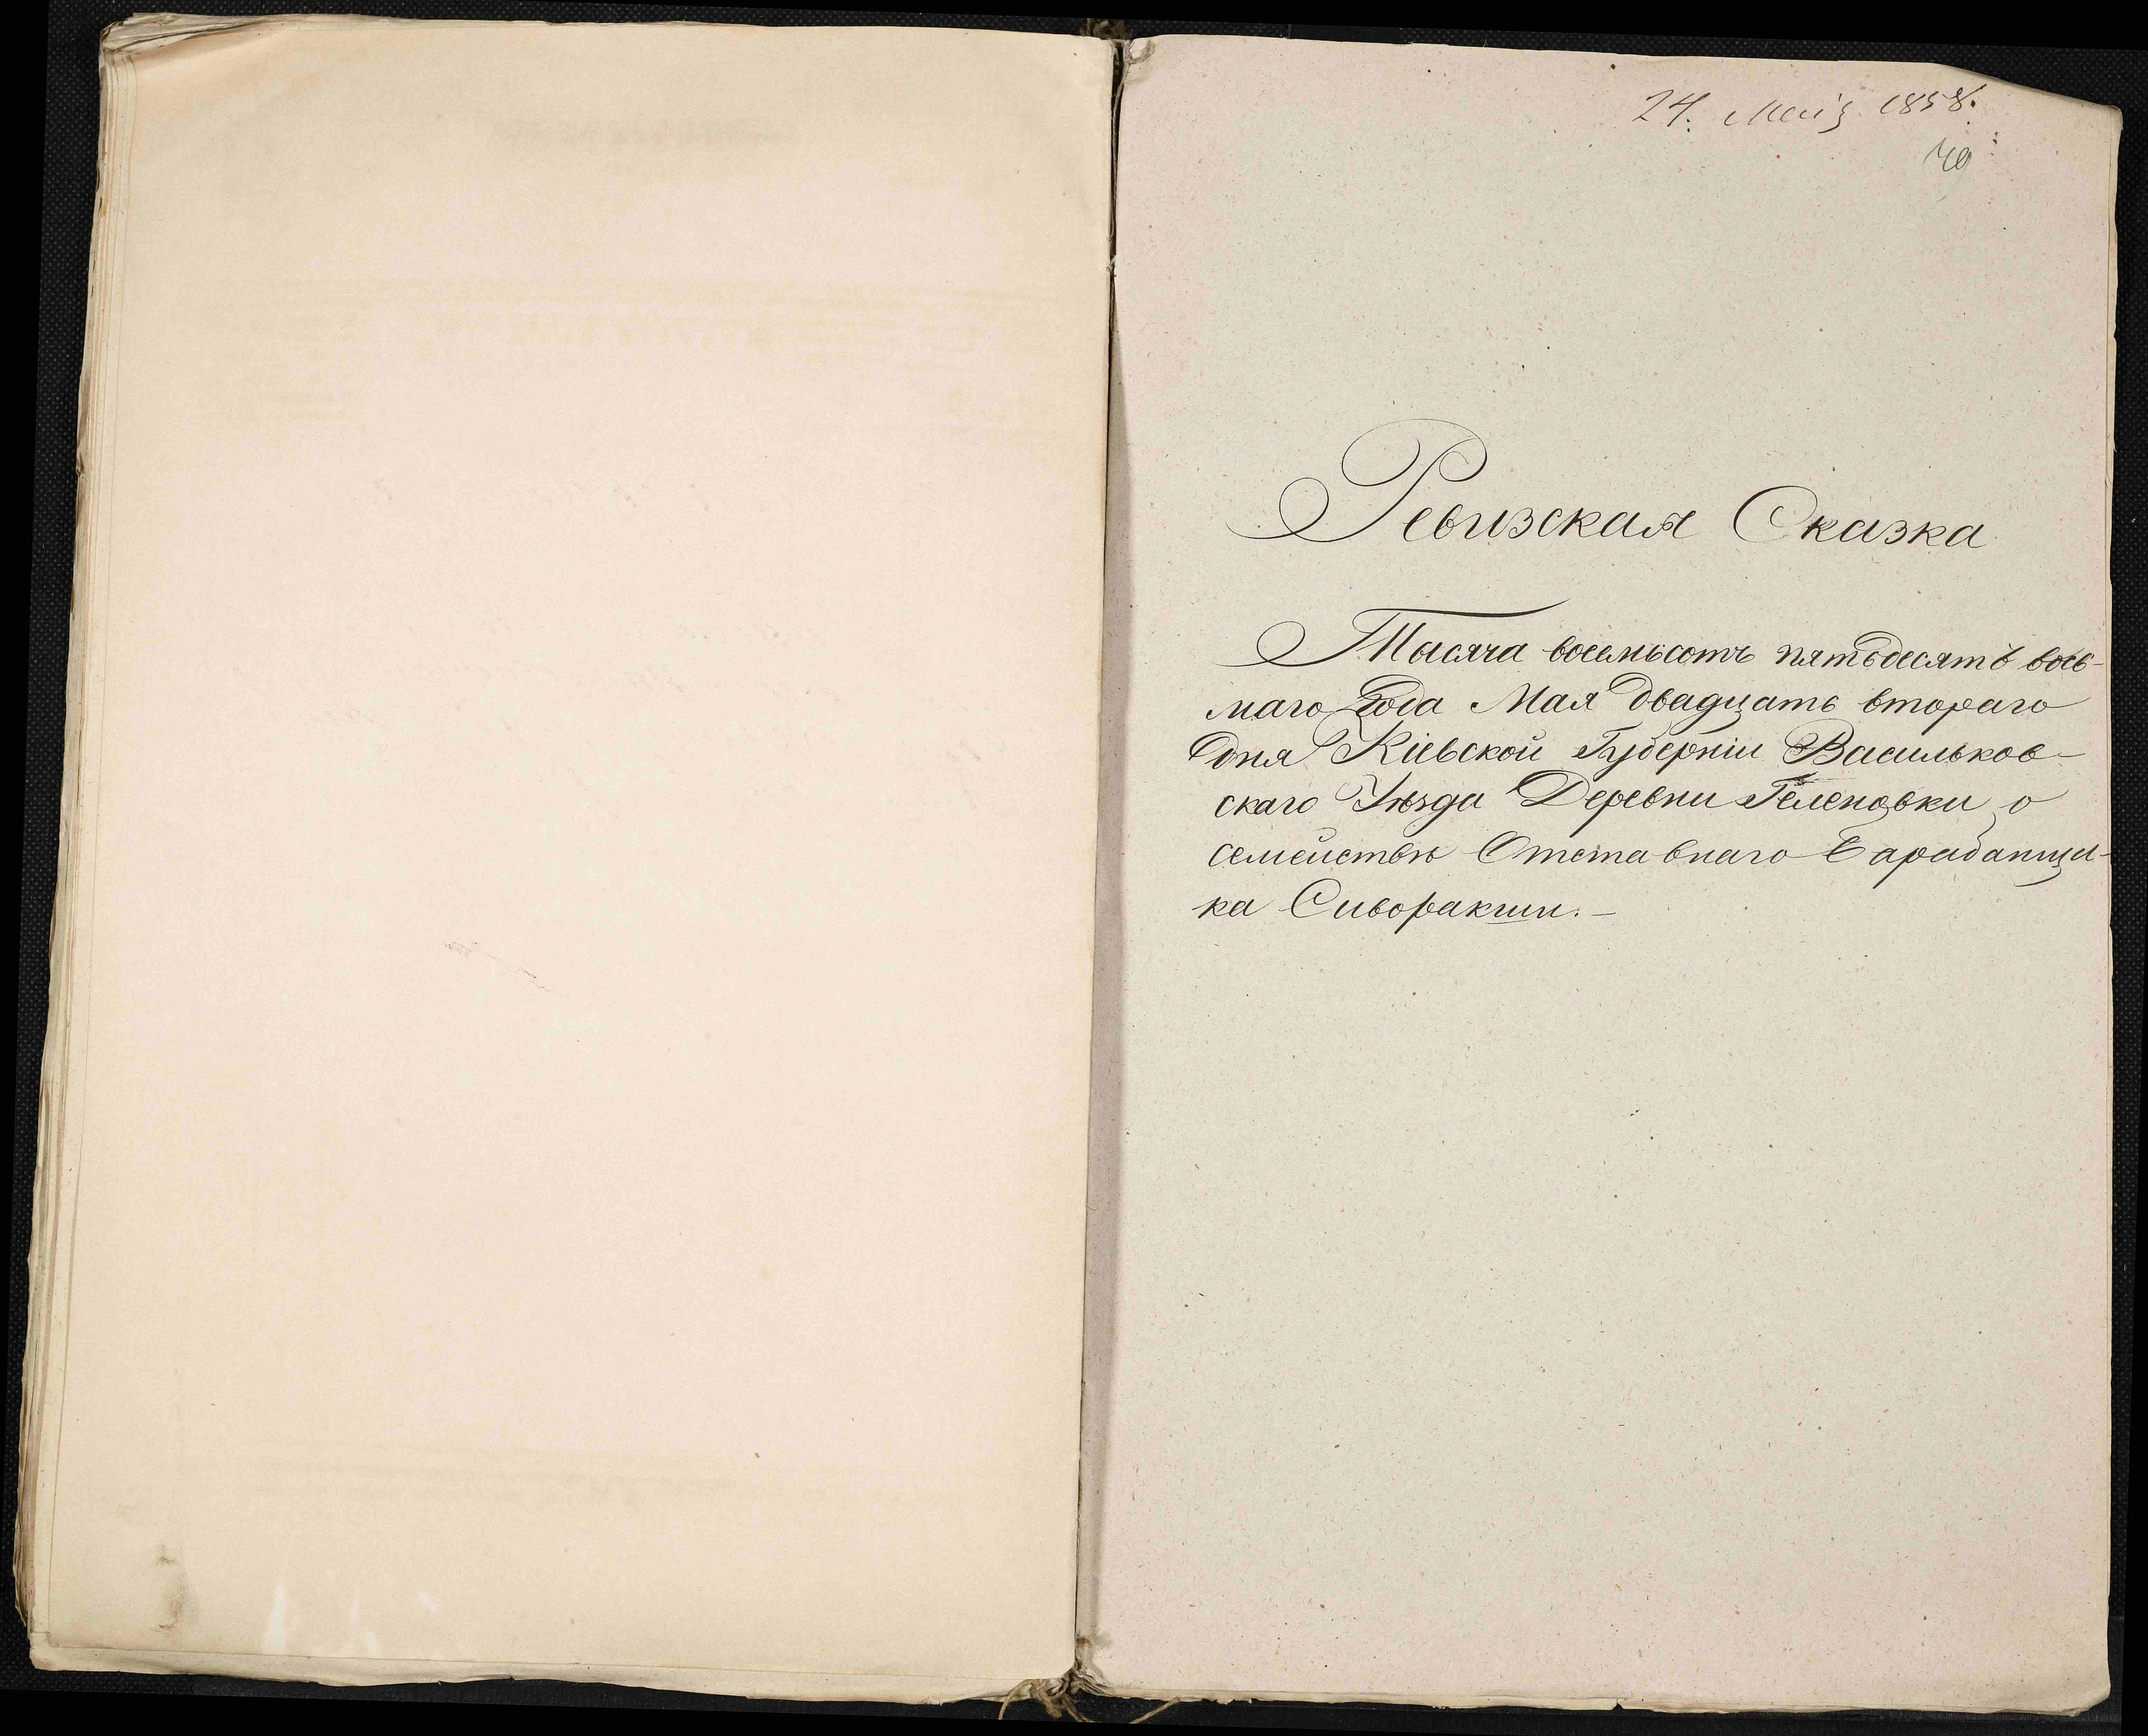 24. Маія 1858.
Ревизская Сказка
Тысяча восемьсотъ пятьдесятъ вось-
маго Года Мая двадцать втораго
дня Кіевской Губерніи Васильков-
скаго Уѣзда Деревни Геленовки о
семействѣ Отставнаго Барабанщи-
ка Сиворакши.-